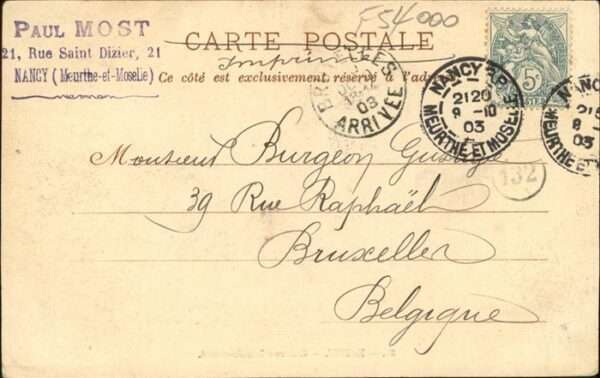 PAUL MOST
21, Rue Saint Dizier, 21
NANCY (Meurthe-et-Moselle)
F54000
CARTE POSTALE
Imprimés
Ce côté est exclusivement réservé à l'adr
BRUXELLES
03
ARRIVÉE
NANCY
2120
8 -10
03
MEURTHE ET MOSELLE
5c
NANCY
8
03
MEURTHE ET
132
Monsieur Burgeon Gustave
39 Rue Raphaël
Bruxelles
Belgique